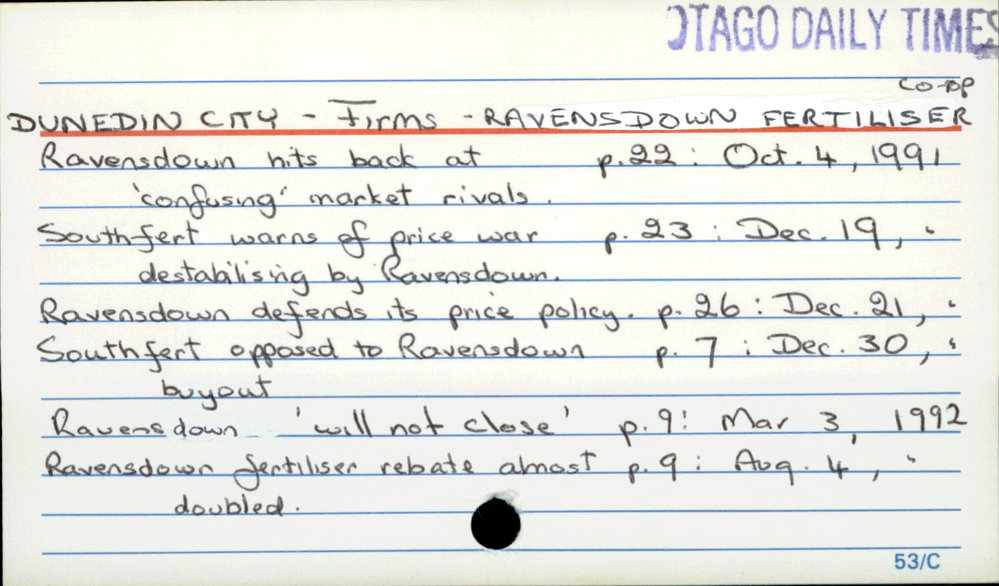 OTAGO DAILY TIMES
CO-OP
DUNEDIN CITY - Firms - RAVENSDOWN FERTILISER
Ravensdown hits back at p.22 : Oct. 4, 1991
'confusing' market rivals.
Southfert warns of price war p. 23 : Dec. 19, "
destabilising by Ravensdown.
Ravensdown defends its price policy. p. 26 : Dec. 21, "
Southfert opposed to Ravensdown p. 7 : Dec. 30, "
buyout
Ravensdown 'will not close' p. 9: Mar 3, 1992
Ravensdown fertiliser rebate almost p. 9 : Aug. 4, "
doubled.
53/C